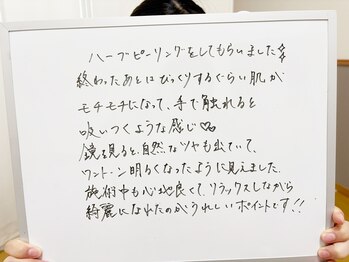 ハーブピーリングをしてもらいました✨
終わったあとはびっくりするぐらい肌が
モチモチになって、手で触れると
吸いつくような感じ♡♡
鏡を見ると、自然なツヤも出ていて、
ワントーン明るくなったように見えました。
施術中も心地良くて、リラックスしながら
綺麗になれたのがうれしいポイントです!!